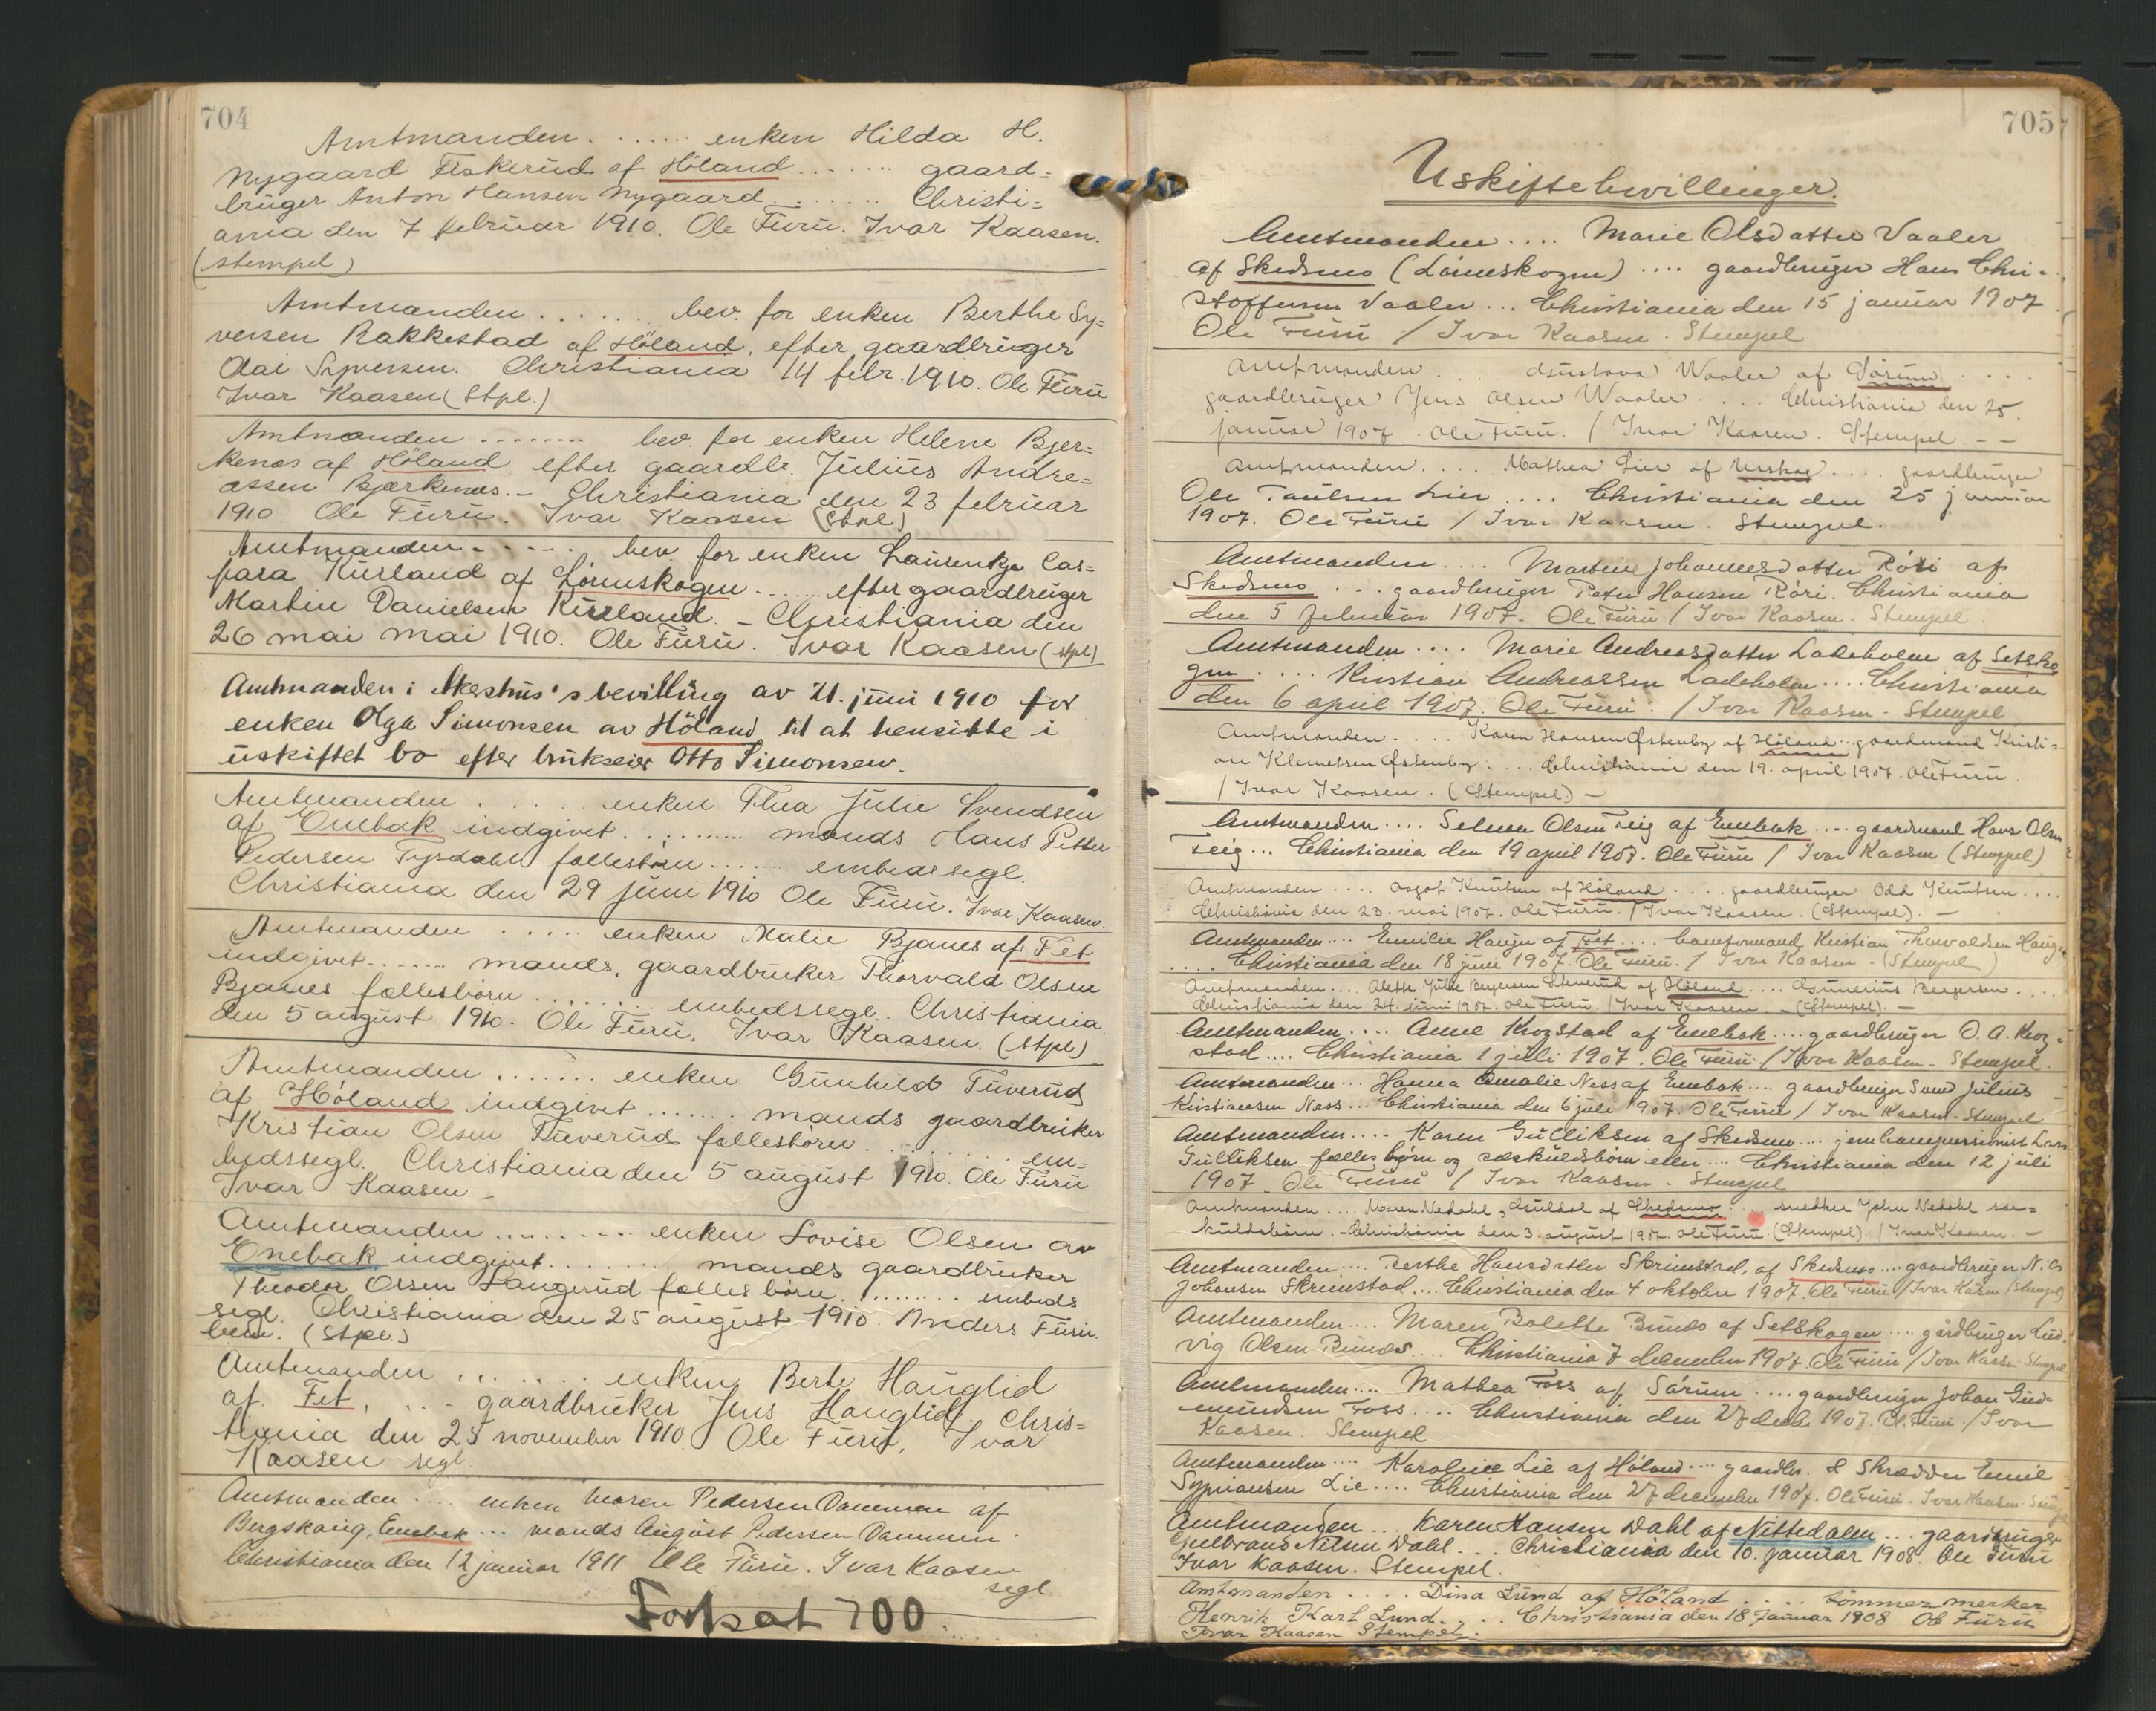 704
Amtmanden ....... enken Hilda H.
Nygaard Fiskerud af Höland ....... gaard=
brüger Anton Hansen Nygaard ....... Christi=
ania den 7 februar 1910. Ole Furü. Ivar Kaasen.
(stempel)
Amtmanden ....... bev. for enken Berthe Sy=
versen Rakkestad af Höland, efter gaardbrüger
Olai Syversen. Christiania 14 febr. 1910. Ole Fürü
Ivar Kaasen (Stpl.)
Amtmanden ........ bev. for enken Helene Bjer=
kenes af Höland efter gaardbr. Jülius Andre=
assen Bjerkenes. - Christiania den 23 februar
1910 Ole Fürü. Ivar Kaasen (Stpl)
Amtmanden ...... bev for enken Laurentze Cas=
para Kürland af Lörenskogen ...... efter gaardbrüger
Martin Danielsen Kürland. - Christiania den
26 mai mai 1910. Ole Fürü. Ivar Kaasen (stpl)
Amtmanden i Akeshus's bevilling av 21. jüni 1910 for
enken Olga Simonsen av Höland til at hensidde i
üskiftet bo efter brükseier Otto Simonsen.
Amtmanden ..... enken Thea Jülie Svendsen
af Enebak indgivet .......... mands Hans Petter
Pedersen Tysdahl fællesbörn ..... embedssegl.
Christiania den 29 jüni 1910 Ole Fürü. Ivar Kaasen.
Amtmanden ..... enken Malie Bjanes af Fet
indgivet ....... mands, gaardbrüker Thorvald Olsen
Bjanes fællesbörn ........ embedssegl. Christiania
den 5 august 1910. Ole Fürü. Ivar Kaasen. (Stpl)
Amtmanden ....... enken Günhild Tüverüd
af Höland indgivet ....... mands gaardbrüker
Kristian Olsen Tüverüd fællesbörn ........ em=
bedssegl. Christiania den 5 august 1910. Ole Fürü
Ivar Kaasen. -
Amtmanden ......... enken Lovise Olsen av
Enebak indgivet ........ mands gaardbrüker
Theodor Olsen Langerüd fælles börn ......... embeds
segl. Christiania den 25 august 1910. Anders Fürü.
(Stpl.)
Amtmanden ....... enken Berte Hauglid
af Fet, ... gaardbrüker Jens Hauglid. Chris=
tiania den 25 november 1910 Ole Fürü, Ivar
Kaasen segl.
Amtmanden .... enken Maren Pedersen Dammen af
Bergskaug, Enebak ... mands August Pedersen Dammen
Christiania den 12 januar 1911 Ole Fürü. Ivar Kaasen
segl
Forts at 700.
705
Uskiftebevillinger.
Amtmanden .... Marie Olsdatter Vaaler
af Skedsmo (Lörenskogen) .... gaardbrüger Hans Chri-
stoffersen Vaaler ... Christiania den 15 januar 1907
Ole Fürü / Ivar Kaasen. Stempel
Amtmanden ... Güstava Waaler af Sörum ....
gaardbrüger Jens Olsen Waaler .... Christiania den 25.
januar 1907. Ole Fürü. / Ivar Kaasen. Stempel. --
Amtmanden .... Mathea Lier af Urskog .... gaardbrüger
Ole Paulsen Lier .... Christiania den 25 januar
1907. Ole Fürü / Ivar Kaasen. Stempel.
Amtmanden .... Martine Johannesdatter Röri af
Skedsmo ... gaardbrüger Peter Hansen Röri. Christiania
den 5 februar 1907. Ole Fürü / Ivar Kaasen. Stempel
Amtmanden .... Marie Andreasdatter Ladeholm af Setsko
gen .... Kristian Andreassen Ladeholm .... Christiania
den 6 april 1907. Ole Fürü. / Ivar Kaasen - Stempel
Amtmanden .... Karen Hansen Østenby af Höland .. gaardmand Kristi=
an Klemetsen Østenby .... Christiania den 19. april 1907. Ole Fürü.
/ Ivar Kaasen. (Stempel) -
Amtmanden .... Selma Olsen Teig af Enebak .... gaardmand Hans Olsen
Teig ... Christiania den 19 april 1907. Ole Fürü / Ivar Kaasen (Stempel)
Amtmanden .... Aagot Knutsen af Höland .... gaardbrüger Odd Knutsen ....
Christiania den 23. mai 1907. Ole Fürü. / Ivar Kaasen. (Stempel). -
Amtmanden .... Emilie Haugen af Fet .... Kristian Thorvaldsen Haugen
.... Christiania den 18 jüni 1907. Ole Fürü. / Ivar Kaasen - (Stempel)
Amtmanden .... Alette Jülie Bergersen af Höland .... Bergersen ....
Christiania den 24. jüni 1907. Ole Fürü. / Ivar Kaasen. - (Stempel). -
Amtmanden .... Anne Krogstad af Enebak .... gaardbrüger O. A. Krog-
stad .... Christiania 1 jüli 1907. Ole Fürü / Ivar Kaasen - Stempel.
Amtmanden ... Hanna Amalie Ness af Enebak .... gaardbrüger Jülius
Kristiansen Ness ... Christiania den 6 jüli 1907. Ole Fürü / Ivar Kaasen - Stempel
Amtmanden .... Karen Gülliksen af Skedsmo .... Lars
Gülliksen fælles börn og særküldsbörn .... Christiania den 12 jüli
1907. Ole Fürü / Ivar Kaasen - Stempel
Amtmanden .... Maren Nedahl, af Skedsmo .... John Nedahl sær=
küldsbörn. - Christiania den 3. august 1907. Ole Fürü (Stempel) / Ivar Kaasen. -
Amtmanden .... Berthe Hansdatter Skrimstad, af Skedsmo .... gaardbrüger
Johansen Skrimstad .... Christiania den 4 oktober 1907. Ole Fürü / Ivar Kaasen (Stempel)
Amtmanden .... Maren Bolette Bünæs af Setskogen .... gårdbrüger Lüd-
vig Olsen Bünæs .... Christiania 7 december 1907. Ole Fürü / Ivar Kaasen Stempel
Amtmanden .... Mathea Foss af Sörum .... gaardbrüger Johan Güd-
mündsen Foss .... Christiania den 27 decb. 1907. Ole Fürü. / Ivar
Kaasen. Stempel
Amtmanden .... Karoline Lie af Höland .... gaardbr. & Skrædder Emil
Syprianusen Lie .... Christiania den 27 december 1907. Ole Fürü. Ivar Kaasen.
Amtmanden ... Karen Hansen Dahl af Nittedalen ... gaardbrüger
Gulbrand Nilsen Dahl ... Christiania den 10. januar 1908. Ole Fürü
Ivar Kaasen. Stempel.
Amtmanden .... Dina Lünd af Höland .... tömmermerker
Henrik Karl Lund .... Christiania den 18 Januar 1908 Ole Fürü
Ivar Kaasen Stempel.